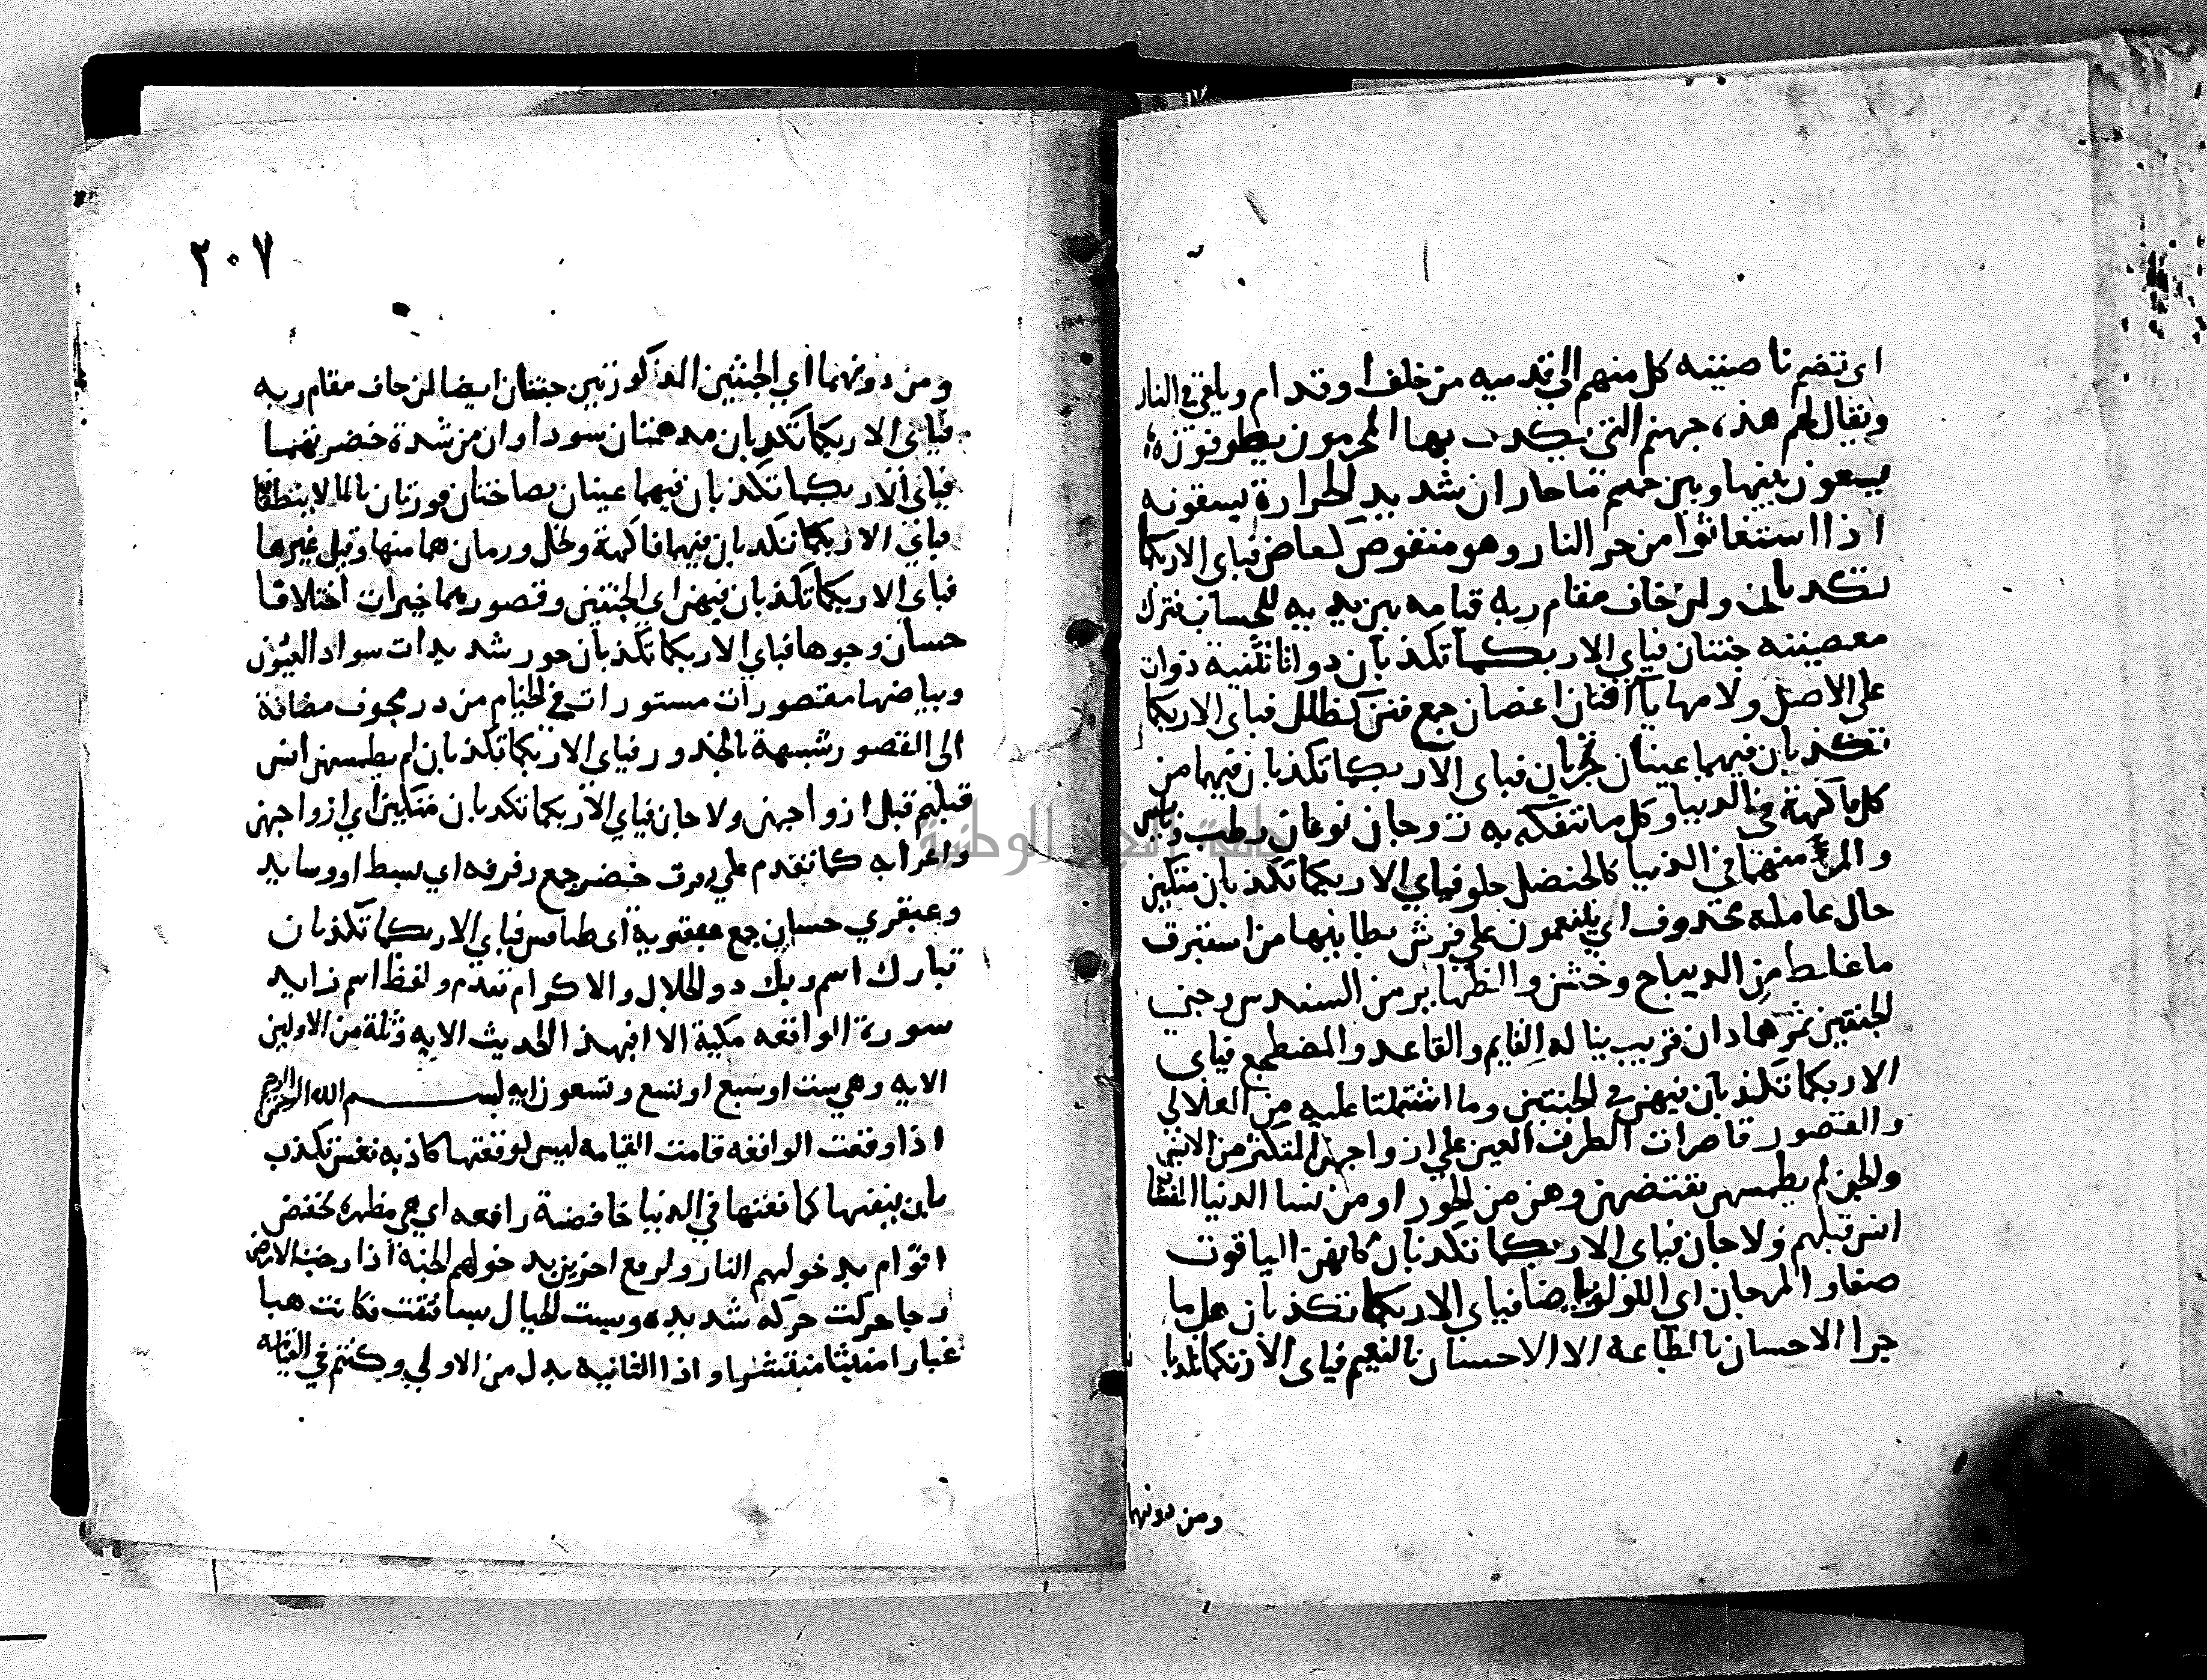 اى تضم ناصيته كل منهم الى قدميه من خلف او قدام ويلقى فى النار
ويقال لهم هذه جهنم التى يكذب بها المجرمون يطوفون
يسعون بينها وبين حميم ما حار ان شديد الحرارة يسقونه
اذا استغاثوا من حر النار وهو منقوص كقاض فباى الا ربكما
تكذبان ولمن خاف مقام ربه قيامه بين يديه للحساب فترك
معصيته جنتان فباي الا ربكما تكذبان ذواتا تثنية ذوات
على الاصل ولامها يا افنان اغصان جمع فنن كطلل فباى الا ربكما
تكذبان فيهما عينان تجريان فباى الا ربكما تكذبان فيهما من
كل فاكهة في الدنيا وكل ما يتفكه به زوجان نوعان رطب ويابس
والمر منهما في الدنيا كالحنضل حلو فباي الا ربكما تكذبان متكين
حال عامله محذوف اي يتنعمون علي فرش بطاينها من استبرق
ما غلط من الديباج وخشن والظهاير من السندس وجنى
الجنتين ثمرهما دان قريب يناله القايم والقاعد والمضطجع فباى
الا ربكما تكذبان فيهن في الجنتين وما اشتملتا عليه من العلالي
والقصور قاصرات الطرف العين علي ازواجهن المتكئين من الانس
والجن لم يطمسهن يفتضهن وهن من الحور او من نسا الدنيا
انس قبلهم ولا جان فباى الا ربكما تكذبان كانهن الياقوت
صفا والمرجان اي اللولو بياضا فباي الا ربكما تكذبان هل ما
جزا الاحسان بالطاعة الا الاحسان بالنعيم فباى الا ربكما تكذبان
ومن دونهما
٢٠٧
ومن دونهما اي الجنتين المذكورتين جنتان ايضا لمن خاف مقام ربه
فباى الا ربكما تكذبان مدهمتان سوداوان من شدة خضرتهما
فباى الا ربكما تكذبان فيهما عينان نضاختان فورتان بالما لا ينطقان
فباي الا ربكما تكذبان فيهما فاكهة ونخل ورمان هما منها وقيل غيرها
فباي الا ربكما تكذبان فيهن اي الجنتين وقصورهما خيرات اختلاقا
حسان وجوها فباي الا ربكما تكذبان حور شديدات سواد العيون
وبياضها مقصورات مستورات في الخيام من در مجوف مضافة
الى القصور شبيهة بالخدور فباى الا ربكما تكذبان لم يطمسهن انس
قبلهم قبل ازواجهن ولا جان فباي الا ربكما تكذبان متكين اي ازواجهن
واعرابه كما تقدم علي رفرف خضر جمع رفرفه اي بسط او وسايد
وعبقري حسان جمع عبقرية اى طنافس فباى الا ربكما تكذبان
تبارك اسم ربك ذو الجلال والاكرام تقدم ولفظ اسم زايد
سورة الواقعه مكية الا افبهذا الحديث الايه وثلة من الاولين
الايه وهي ست او سبع او تسع وتسعون ايه بسم الله الرحمن الرحيم
اذا وقعت الواقعه قامت القيامه ليس لوقعتها كاذبه نفس تكذب
بان ينفيها كما نفتها في الدنيا خافضة رافعه اي هي مظهره لخفض
اقوام بدخولهم النار ولرفع اخرين بدخولهم الجنة اذا رجت الارض
رجا حركت حركه شديده وبست الجبال بسا فتتت فكانت هبا
غبارا منبثا منتشرا واذا الثانيه بدل من الاولي وكنتم في القيامه